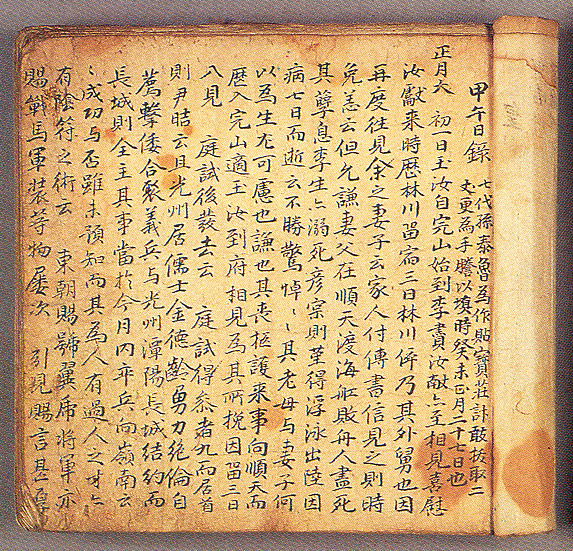 甲午日錄
七代孫泰魯爲作貽寶莊計敢拔取二
丈更爲手謄以塡時癸未正月二十七日也
正月大 初一日玉汝自完山始到李書汝獻亦至相見喜慰
汝獻來時歷林川留宿三日林川倅乃其外舅也因
再度往見余之妻子云家人付傳書信見之則時
免恙云但允謙妻父在順天渡海舡敗舟人盡死
其孽息李生亦溺死彦宗則菫得浮泳出陸因
病七日而逝云不勝驚悼〻其老母与妻子何
以爲生尤可慮也謙也其喪柩護來事向順天而
歷入完山適玉汝到府相見爲其所挽因留三日
八見 庭試後發去云 庭試得參者九而居首
則尹晧云且光州居儒士金德齡勇力絶倫自
薦擊倭合聚義兵与光州潭陽長城結約而
長城則全主其事當於今月內率兵向嶺南云
〻成功与否雖未預知而其爲人有過人之才亦
有陰符之術云 東朝賜號翼虎將軍亦
賜戰馬軍裝等物屢次 引見賜言甚